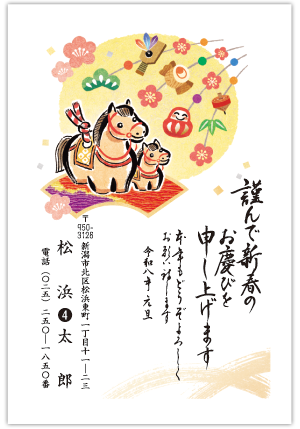 謹んで新春の
お慶びを
申し上げます
本年もどうぞよろしく
お願い致します
令和八年 元旦
〒950-3126
新潟市北区松浜東町一丁目十一―二三
松浜❹太郎
電話（〇二五）二五〇―一八五〇番